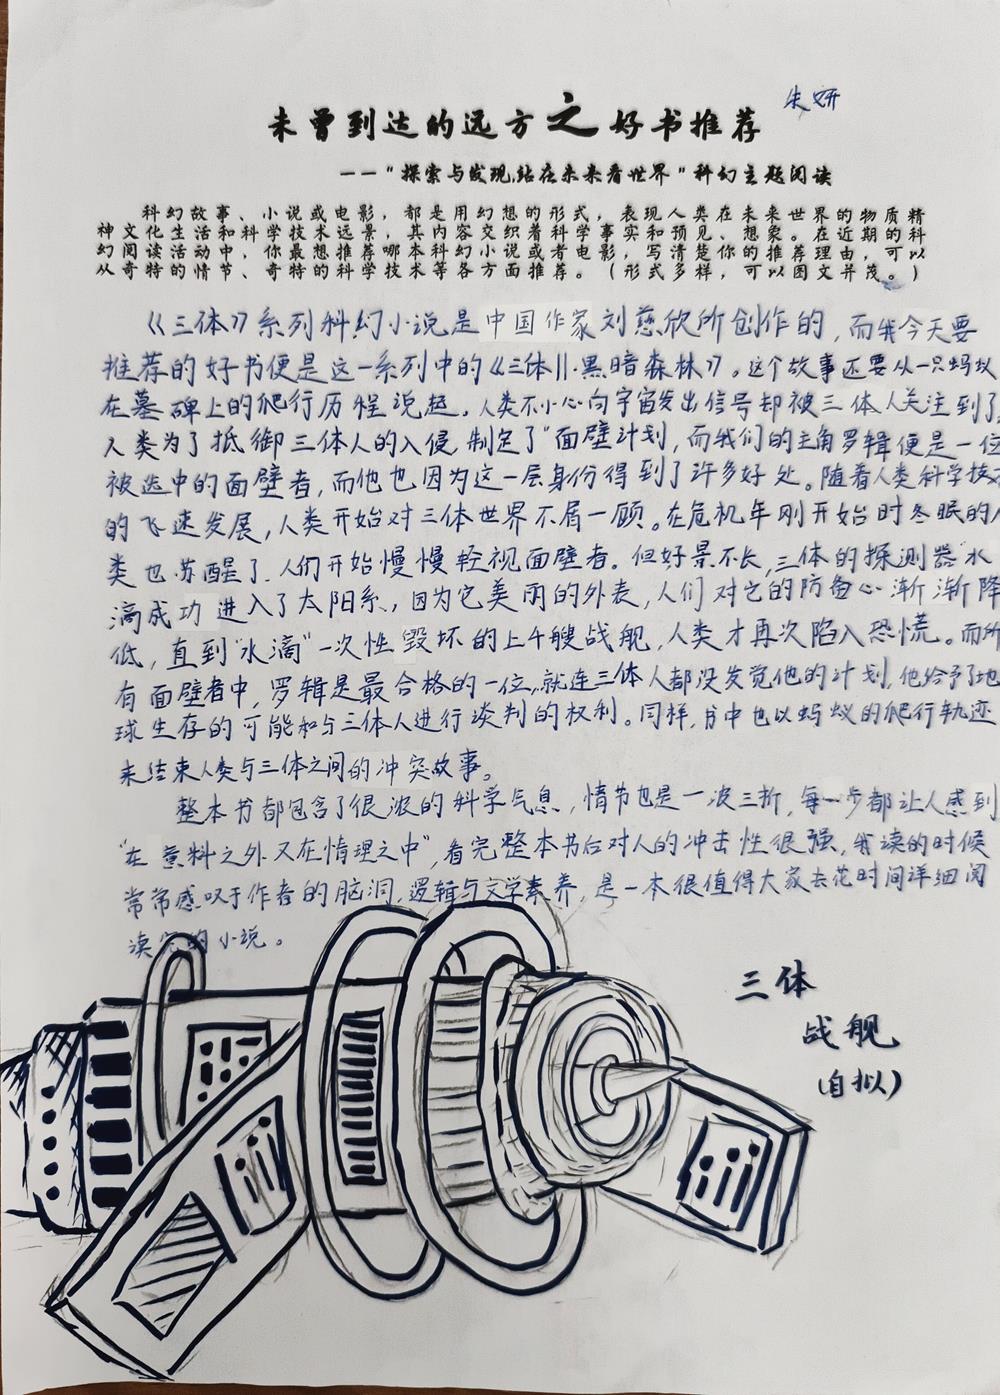 朱妍
未曾到达的远方之好书推荐
——“探索与发现，站在未来看世界”科幻主题阅读
科幻故事、小说或电影，都是用幻想的形式，表现人类在未来世界的物质精
神文化生活和科学技术远景，其内容交织着科学事实和预见、想象。在近期的科
幻阅读活动中，你最想推荐哪本科幻小说或者电影，写清楚你的推荐理由，可以
从奇特的情节、奇特的科学技术等各方面推荐。（形式多样，可以图文并茂。）
《三体》系列科幻小说是中国作家刘慈欣所创作的，而我今天要
推荐的好书便是这一系列中的《三体Ⅱ·黑暗森林》。这个故事还要从一只蚂蚁
在墓碑上的爬行历程说起。人类不小心向宇宙发出信号却被三体人关注到了，
人类为了抵御三体人的入侵，制定了“面壁计划，而我们的主角罗辑便是一位
被选中的面壁者，而他也因为这一层身份得到了许多好处。随着人类科学技
的飞速发展，人类开始对三体世界不屑一顾。在危机年刚开始时冬眠的人
类也苏醒了，人们开始慢慢轻视面壁者。但好景不长，三体的探测器“水
滴成功进入了太阳系，因为它美丽的外表，人们对它的防备心渐渐降
低，直到“水滴”一次性毁坏的上千艘战舰，人类才再次陷入恐慌。而所
有面壁者中，罗辑是最合格的一位，就连三体人都没发觉他的计划，他给予了地
球生存的可能和与三体人进行谈判的权利。同样，书中也以蚂蚁的爬行轨迹
来结束人类与三体之间的冲突故事。
整本书都包含了很浓的科学气息，情节也是一波三折，每一步都让人感到
“在意料之外又在情理之中”，看完整本书后对人的冲击性很强，我读的时候
常常感叹于作者的脑洞，逻辑与文学素养，是一本很值得大家去花时间详细阅
读完的小说。
三体
战舰
（自拟）